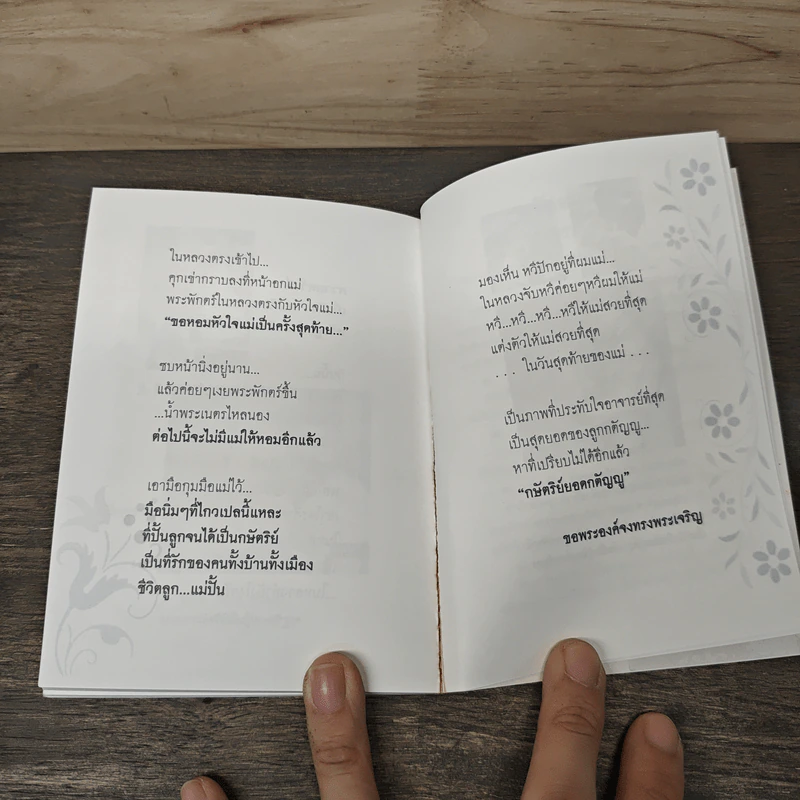 ในหลวงตรงเข้าไป...
คุกเข่ากราบลงที่หน้าอกแม่
พระพักตร์ในหลวงตรงกับหัวใจแม่...
“ขอหอมหัวใจแม่เป็นครั้งสุดท้าย...”
ซบหน้านิ่งอยู่นาน...
แล้วค่อยๆเงยพระพักตร์ขึ้น
...น้ำพระเนตรไหลนอง
ต่อไปนี้จะไม่มีแม่ให้หอมอีกแล้ว
เอามือกุมมือแม่ไว้...
มือนิ่มๆที่ไกวเปลนี้แหละ
ที่ปั้นลูกจนได้เป็นกษัตริย์
เป็นที่รักของคนทั้งบ้านทั้งเมือง
ชีวิตลูก...แม่ปั้น
มองเห็น หวีปักอยู่ที่ผมแม่...
ในหลวงจับหวีค่อยๆหวีผมให้แม่
หวี...หวี...หวี...หวีให้แม่สวยที่สุด
แต่งตัวให้แม่สวยที่สุด
. . . ในวันสุดท้ายของแม่ . . .
เป็นภาพที่ประทับใจอาจารย์ที่สุด
เป็นสุดยอดของลูกกตัญญู...
หาที่เปรียบไม่ได้อีกแล้ว
“กษัตริย์ยอดกตัญญู”
ขอพระองค์จงทรงพระเจริญ